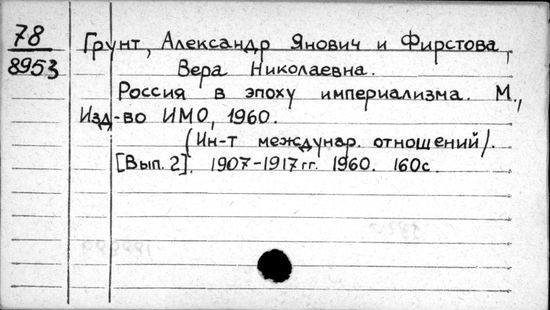 78
8953
Грунт, Александр Янович и Фирстова,
Вера Николаевна.
Россия в эпоху империализма. М.,
Изд-во ИМО, 1960.
(Ин-т междунар. отношений).
[Вып. 2]. 1907-1917 гг. 1960. 160 с.